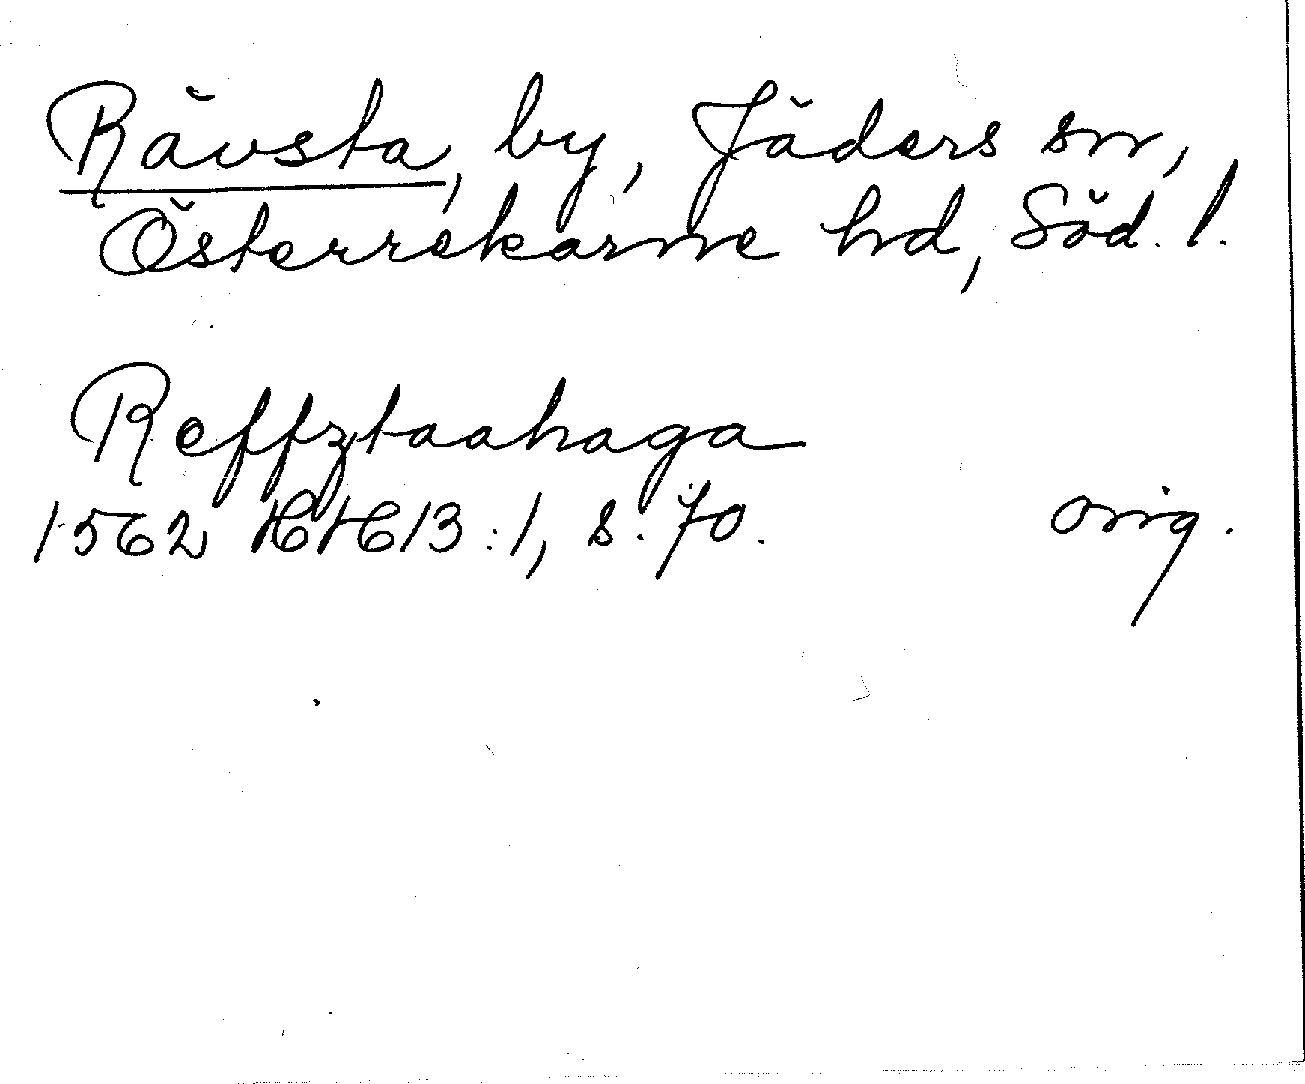 Rävsta, by, Jäders sn,
Österrekarne hd, Söd. l.
Reffztaahaga
1562 HH 13:1, s. 70. orig.